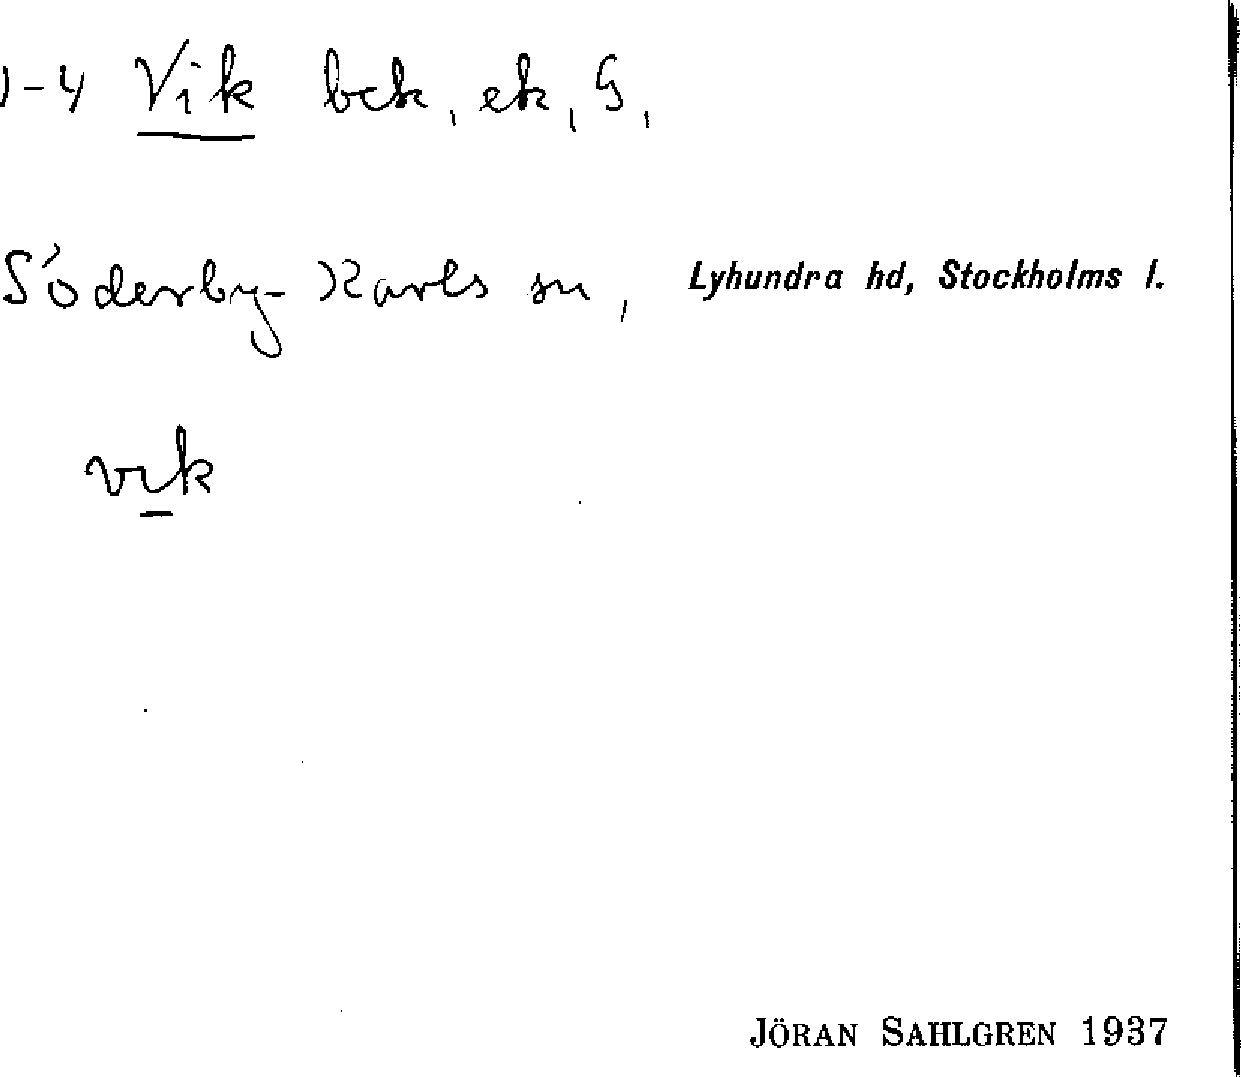 -4 Vik bck, ek, G,
Söderby-Karls sn, Lyhundra hd, Stockholms l.
vik
JÖRAN SAHLGREN 1937